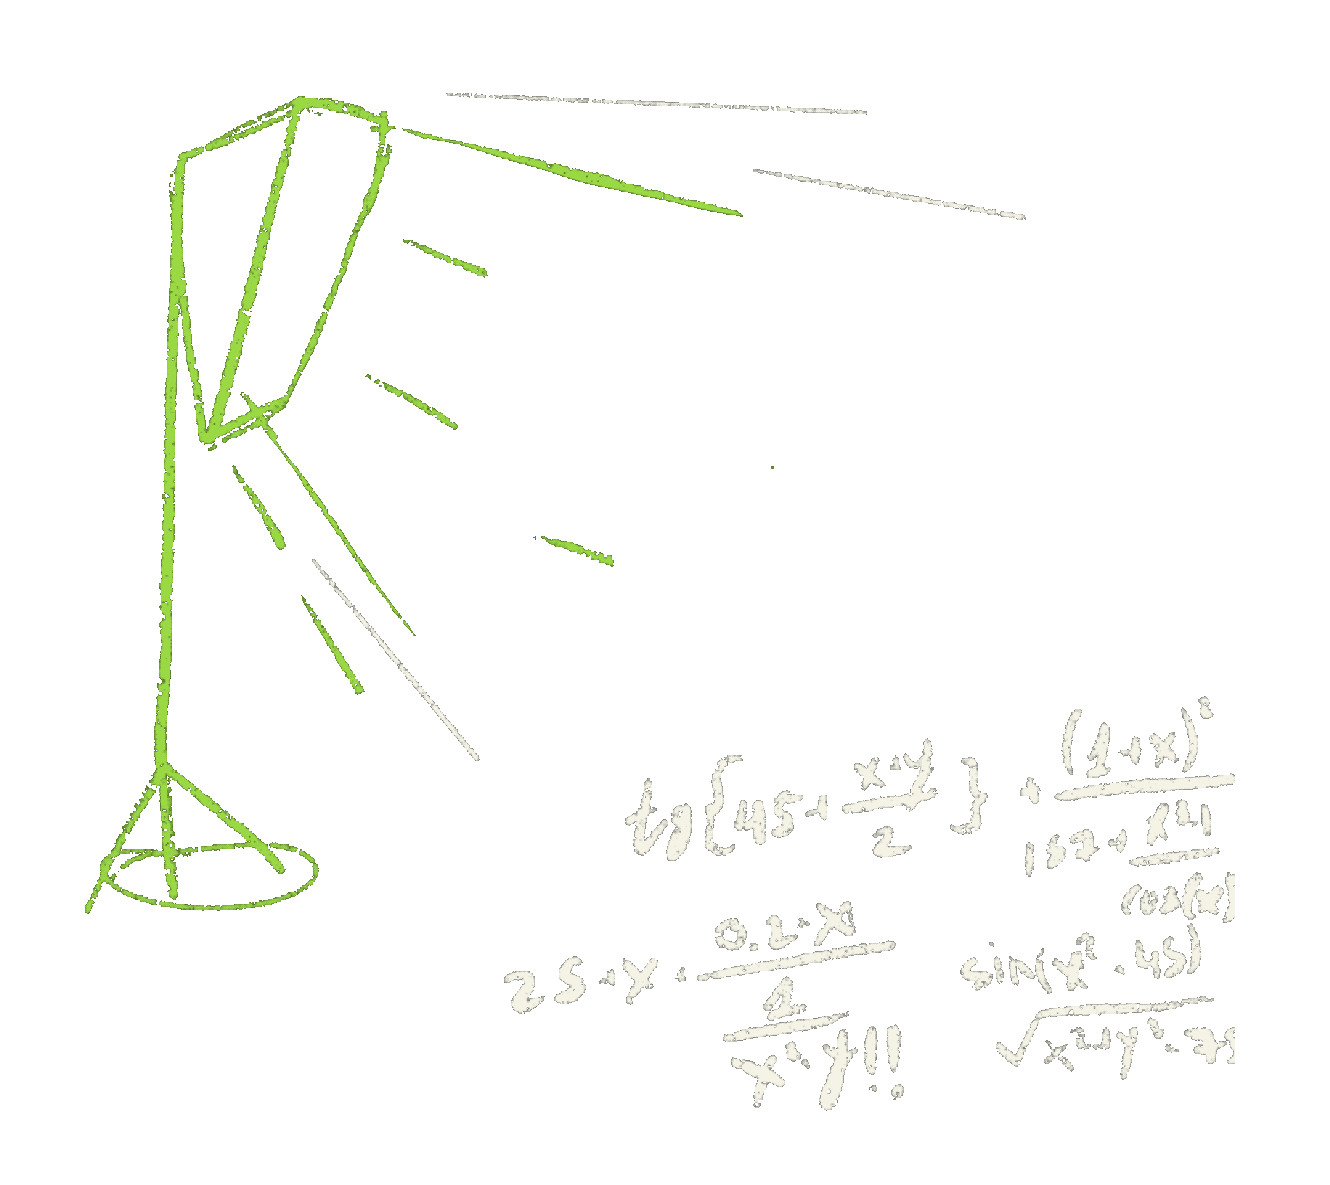 tg{45+ x·y/2} + (1+x)²/152+ x²1/cos(x)
25·y· 0.2·x / 1/x·y!!
sin(x²·45) / √x²+y²·75